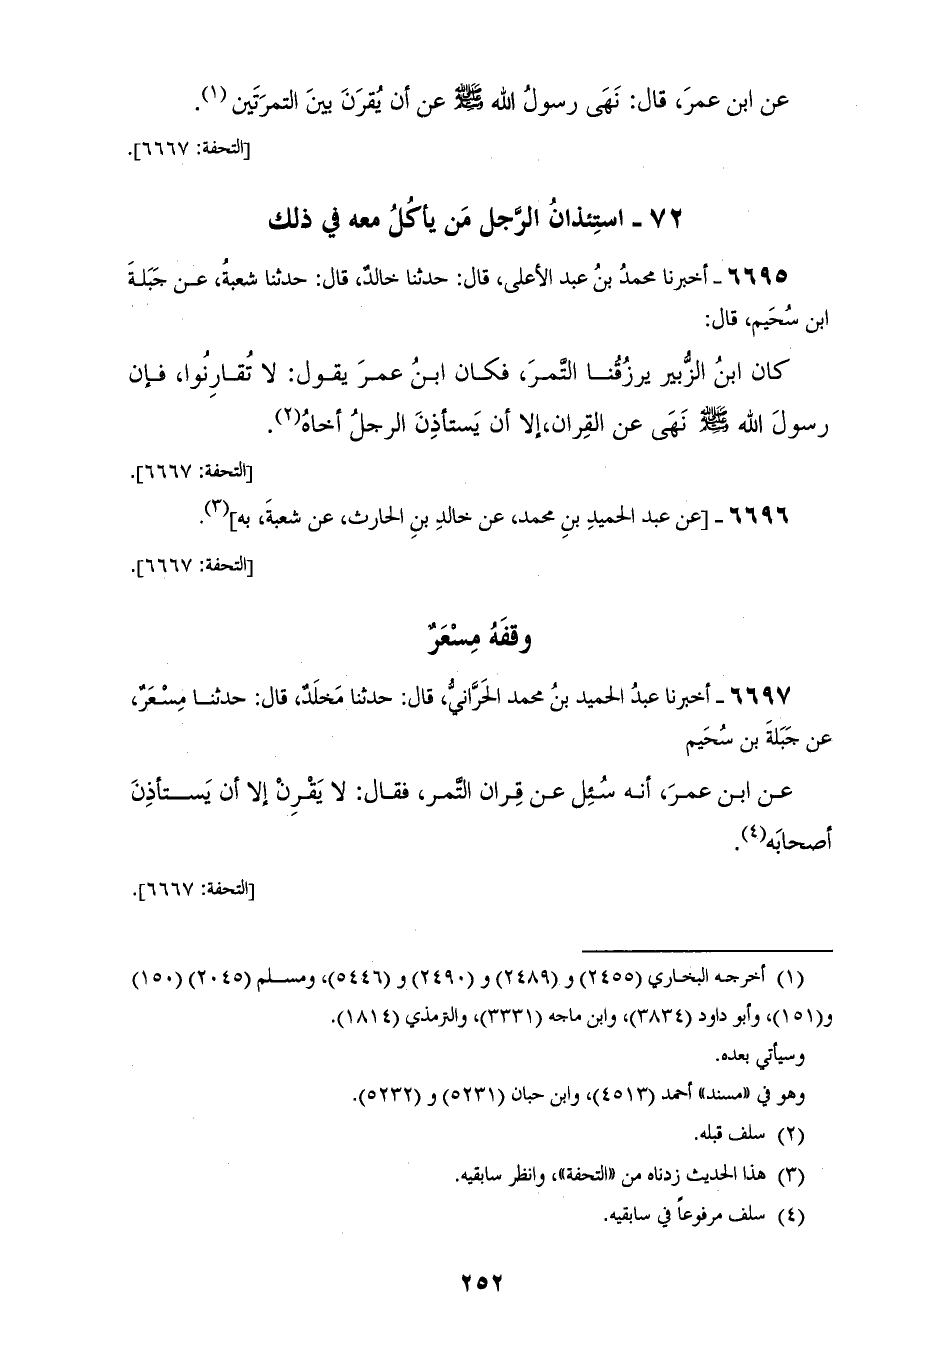 عن ابن عمرَ، قال: نَهَى رسولُ الله ﷺ عن أن يُقرَنَ بينَ التمرتَين (١).
[التحفة: ٦٦٦٧].
٧٢ ـ استِئذانُ الرَّجل مَن يأكُلُ معه في ذلك
٦٦٩٥ ـ أخبرنا محمدُ بنُ عبد الأعلى، قال: حدثنا خالدٌ، قال: حدثنا شعبةُ، عـن جَبَلـةَ
ابن سُحَيم، قال:
كان ابنُ الزُّبير يرزُقُنـا التَّمـرَ، فكـان ابـنُ عمـرَ يقـول: لا تُقـارِنُوا، فـإن
رسولَ الله ﷺ نَهَى عن القِران،إلا أن يَستأذِنَ الرجلُ أخاهُ(٢).
[التحفة: ٦٦٦٧].
٦٦٩٦ ـ [عن عبد الحميدِ بنِ محمد، عن خالدِ بنِ الحارث، عن شعبةَ، به](٣).
[التحفة: ٦٦٦٧].
وقفَهُ مِسْعَرٌ
٦٦٩٧ ـ أخبرنا عبدُ الحميد بنُ محمد الحَرَّانيُّ، قال: حدثنا مَخلَدٌ، قال: حدثنـا مِسْعَرٌ،
عن جَبَلةَ بن سُحَيم
عـن ابـن عمـرَ، أنـه سُئِل عـن قِران التَّمـر، فقـال: لا يَقْرِنْ إلا أن يَسـتأذِنَ
أصحابَه(٤).
[التحفة: ٦٦٦٧].
(١) أخرجـه البخاري (٢٤٥٥) و (٢٤٨٩) و (٢٤٩٠) و (٥٤٤٦)، ومسـلم (٢٠٤٥) (١٥٠)
و(١٥١)، وأبو داود (٣٨٣٤)، وابن ماجه (٣٣٣١)، والترمذي (١٨١٤).
وسيأتي بعده.
وهو في «مسند» أحمد (٤٥١٣)، وابن حبان (٥٢٣١) و (٥٢٣٢).
(٢) سلف قبله.
(٣) هذا الحديث زدناه من «التحفة»، وانظر سابقيه.
(٤) سلف مرفوعاً في سابقيه.
٢٥٢